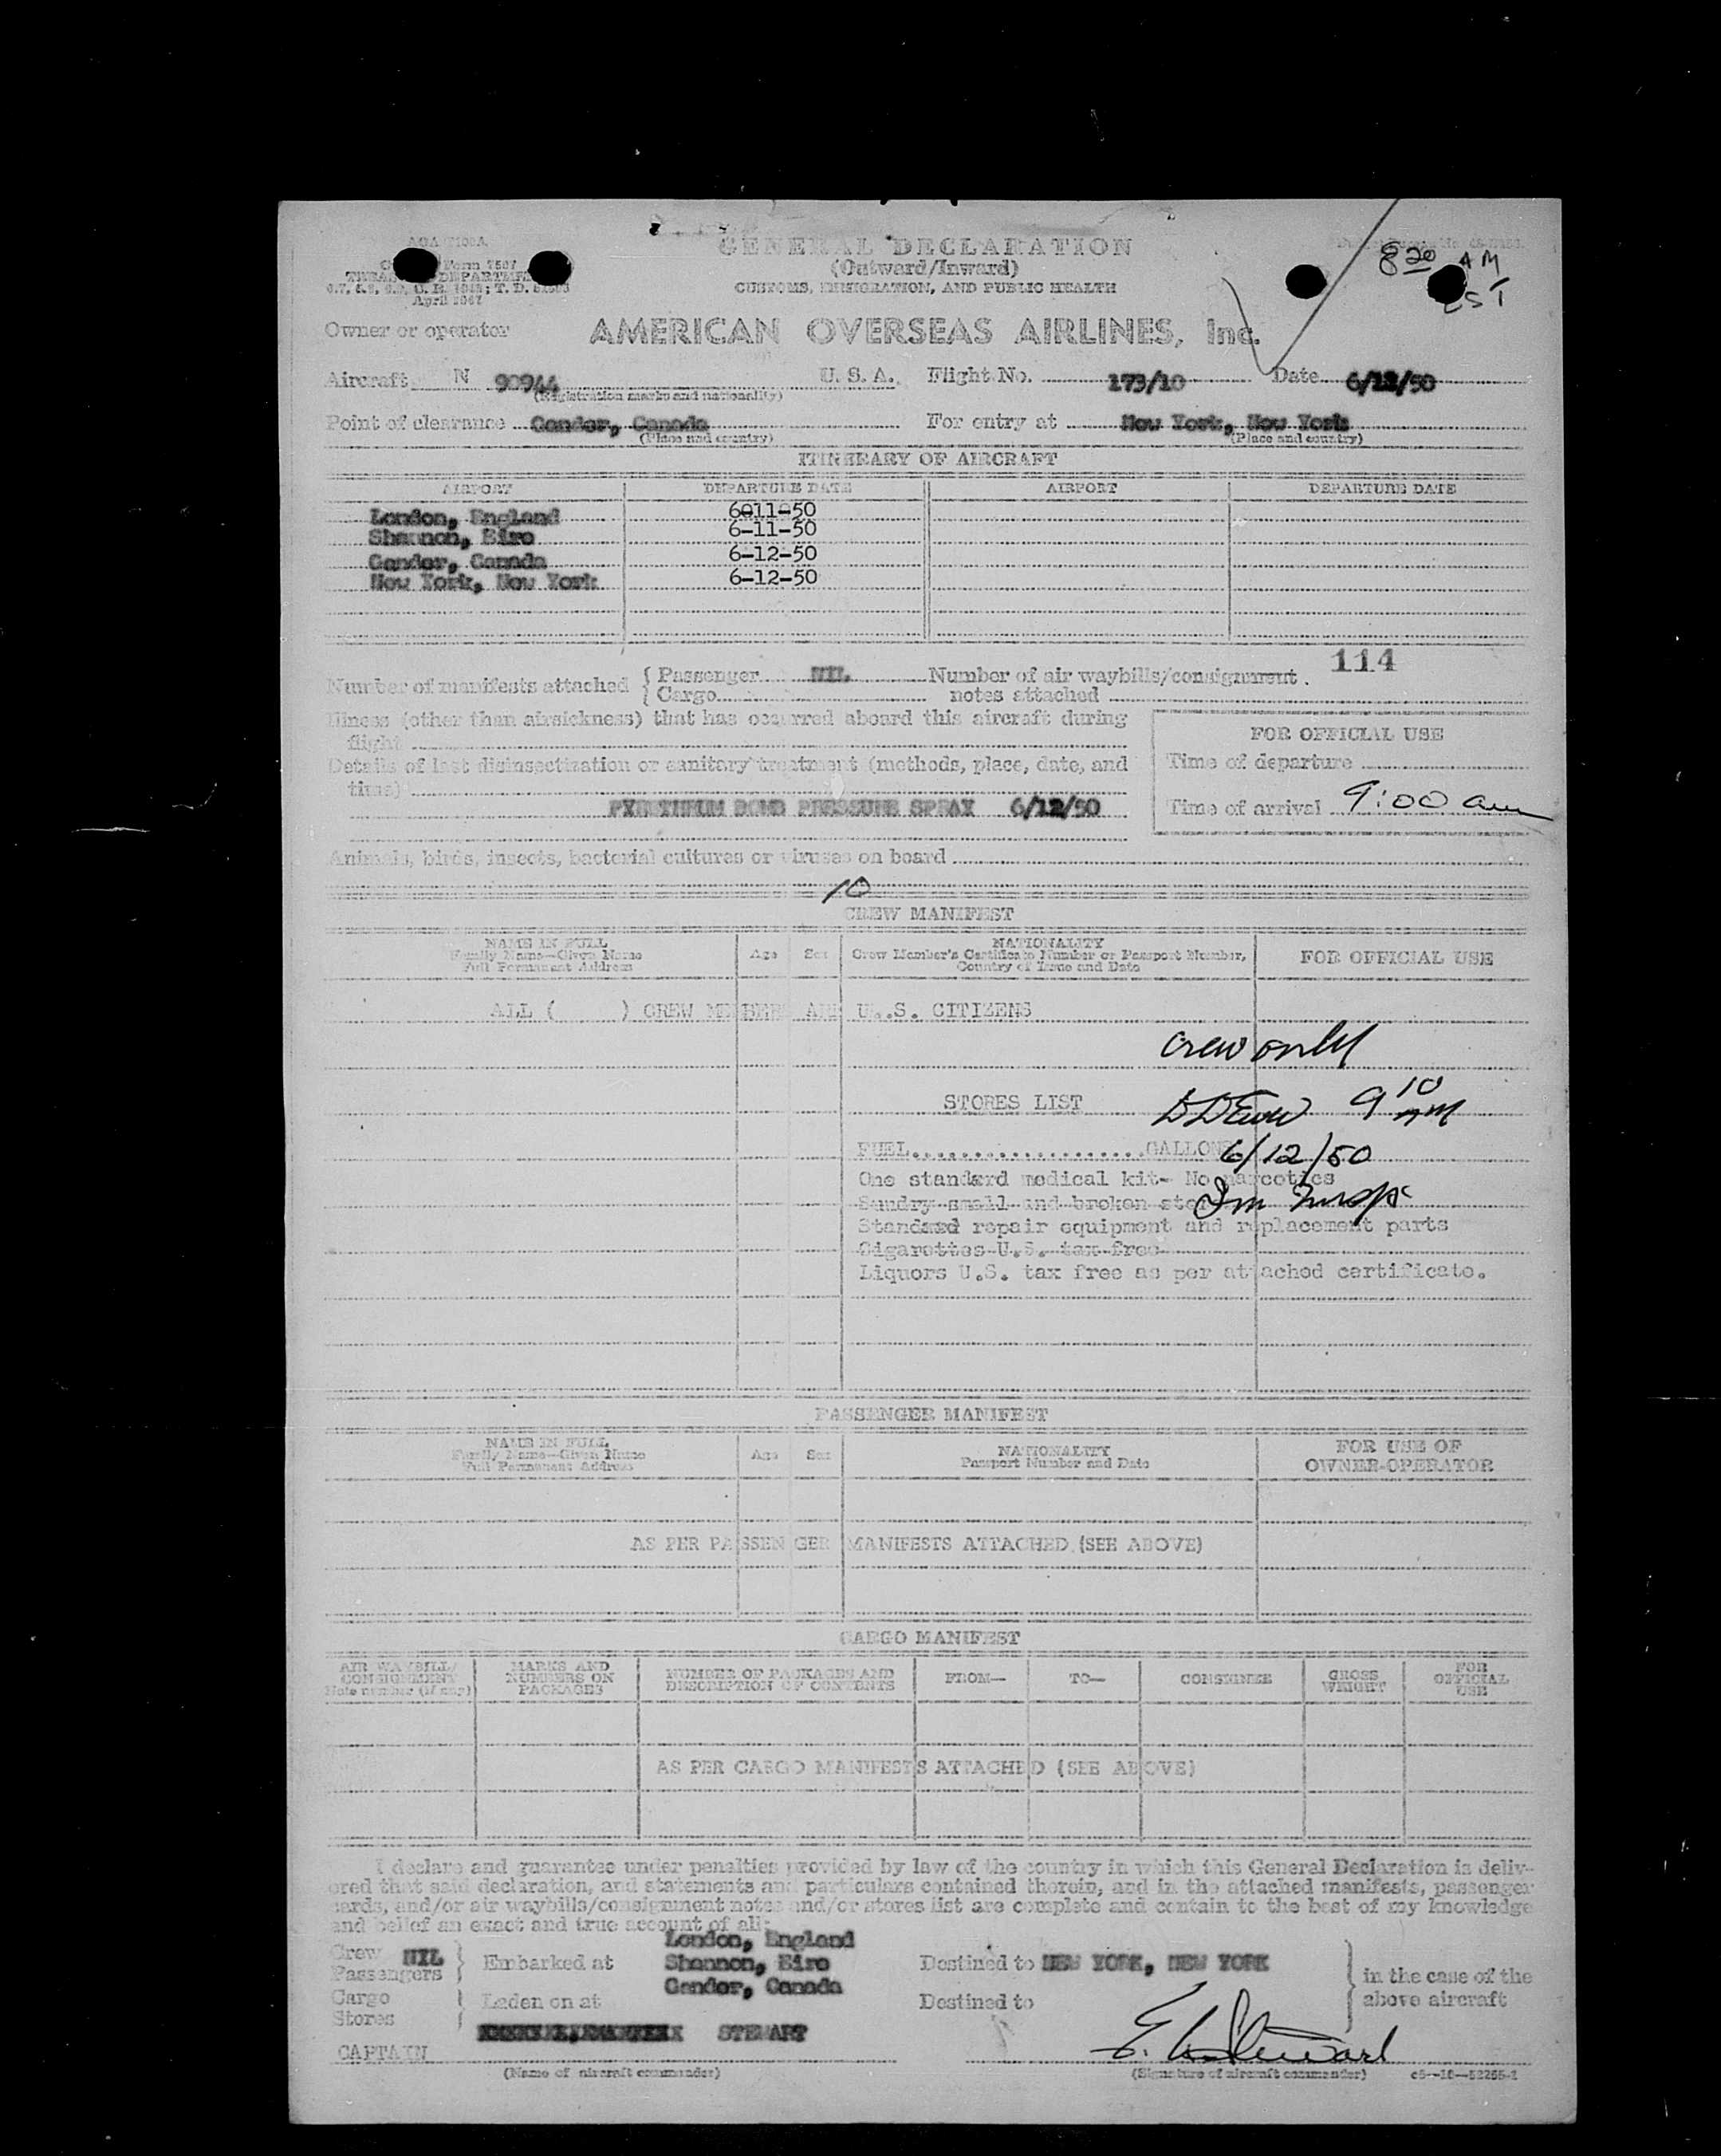 GENERAL DECLARATION
(Outward/Inward)
CUSTOMS, IMMIGRATION, AND PUBLIC HEALTH
8 20 AM
EST
Form 7507
TREAS DEPARTMENT
April 1947
Owner or operator AMERICAN OVERSEAS AIRLINES, Inc.
Aircraft N 90944 U. S. A. Flight No. 173/10 Date 6/12/50
(Registration marks and nationality)
Point of clearance Gander, Canada For entry at New York, New York
(Place and country) (Place and country)
ITINERARY OF AIRCRAFT
AIRPORT DEPARTURE DATE AIRPORT DEPARTURE DATE
London, England 6011-50
Shannon, Eire 6-11-50
Gander, Canada 6-12-50
New York, New York 6-12-50
114
Number of manifests attached { Passenger NIL Number of air waybills/consignment
Cargo notes attached
Illness (other than airsickness) that has occurred aboard this aircraft during
flight
Details of last disinsectization or sanitary treatment (methods, place, date, and
time)
PYRETHRUM BOMB PRESSURE SPRAY 6/12/50
FOR OFFICIAL USE
Time of departure
Time of arrival 9:00 am
Animals, birds, insects, bacterial cultures or viruses on board
10
CREW MANIFEST
NAME IN FULL
Family Name—Given Name
Full Permanent Address
Age Sex
NATIONALITY
Crew Member's Certificate Number or Passport Number,
Country of Issue and Date
FOR OFFICIAL USE
ALL ( ) CREW MEMBERS ARE U.S. CITIZENS
Crew only
STORES LIST 9 10 AM
FUEL....................GALLONS 6/12/50
One standard medical kit- No narcotics
Sundry small and broken stores
Standard repair equipment and replacement parts
Cigarettes U.S. tax free
Liquors U.S. tax free as per attached certificate.
PASSENGER MANIFEST
NAME IN FULL
Family Name—Given Name
Full Permanent Address
Age Sex
NATIONALITY
Passport Number and Date
FOR USE OF
OWNER-OPERATOR
AS PER PASSENGER MANIFESTS ATTACHED (SEE ABOVE)
CARGO MANIFEST
AIR WAYBILL/
CONSIGNMENT
Note number (if any)
MARKS AND
NUMBERS ON
PACKAGES
NUMBER OF PACKAGES AND
DESCRIPTION OF CONTENTS
FROM— TO— CONSIGNEE
GROSS
WEIGHT
FOR
OFFICIAL
USE
AS PER CARGO MANIFESTS ATTACHED (SEE ABOVE)
I declare and guarantee under penalties provided by law of the country in which this General Declaration is deliv-
ered that said declaration, and statements and particulars contained therein, and in the attached manifests, passenger
cards, and/or air waybills/consignment notes and/or stores list are complete and contain to the best of my knowledge
and belief an exact and true account of all:
Crew NIL
Passengers
Embarked at London, England
Shannon, Eire
Gander, Canada
Destined to NEW YORK, NEW YORK
in the case of the
above aircraft
Cargo
Stores
Laden on at
Destined to
STEWART
CAPTAIN
E. Stewart
(Name of aircraft commander) (Signature of aircraft commander) c5—10—52265-1